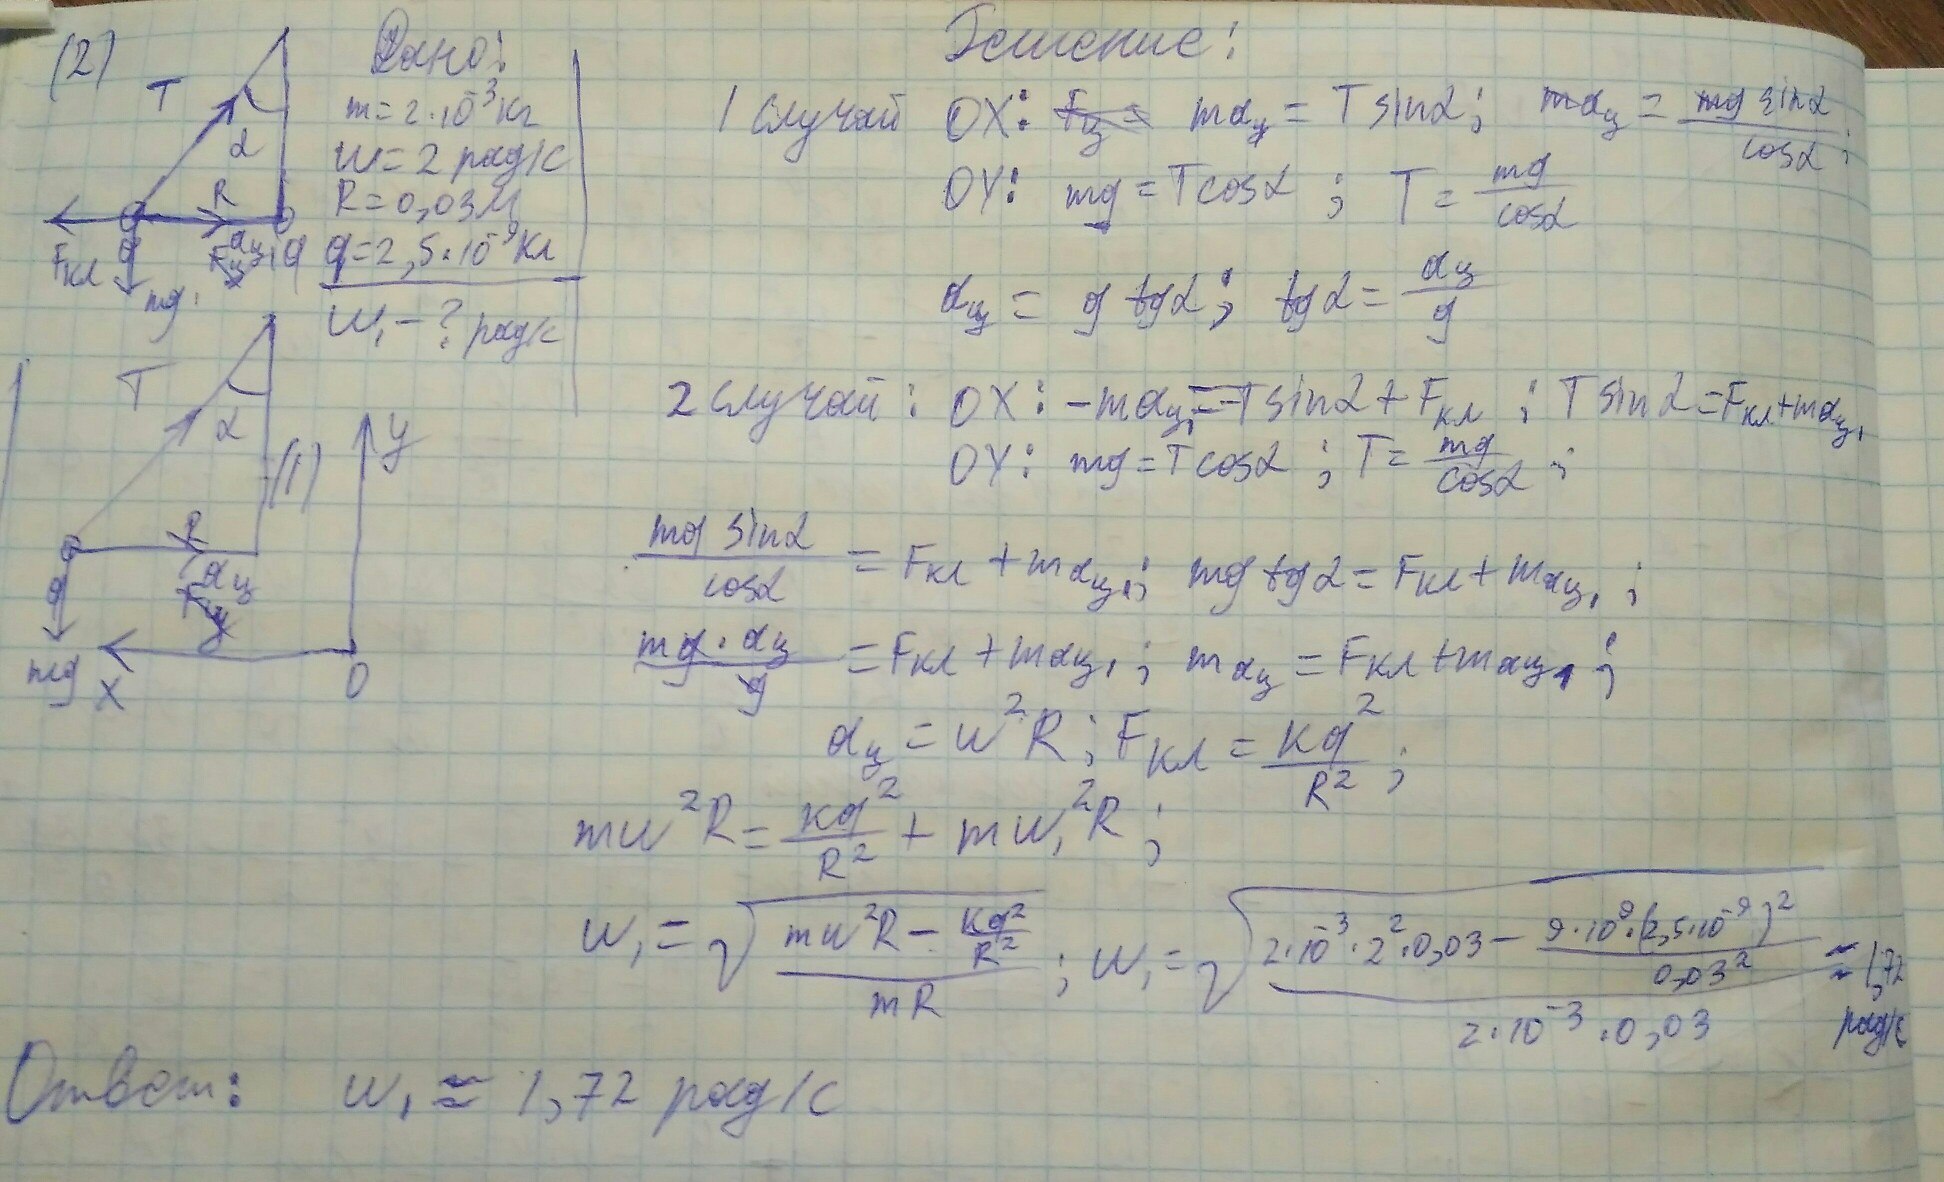 (2) Дано: Решение:
T
α
R
Fкл Fц aц q
mg
m = 2·10⁻³ кг
w = 2 рад/с
R = 0,03 м
q = 2,5·10⁻⁹ Кл
w₁ - ? рад/с
1 случай OX: Fц = maц = T sinα; maц = mg sinα / cosα;
OY: mg = T cosα; T = mg / cosα
aц = g tgα; tgα = aц / g
T
α
(1)
y
R
aц
Fц
mg
X
0
2 случай: OX: -maц₁ = -T sinα + Fкл; T sinα = Fкл + maц₁
OY: mg = T cosα; T = mg / cosα;
mg sinα / cosα = Fкл + maц₁; mg tgα = Fкл + maц₁;
mg·aц / g = Fкл + maц₁; maц = Fкл + maц₁;
aц = w²R; Fкл = kq² / R²;
mw²R = kq² / R² + mw₁²R;
w₁ = √((mw²R - kq²/R²) / mR); w₁ = √((2·10⁻³·2²·0,03 - 9·10⁹·(2,5·10⁻⁹)² / 0,03²) / 2·10⁻³·0,03) ≈ 1,72 рад/с
Ответ: w₁ ≈ 1,72 рад/с